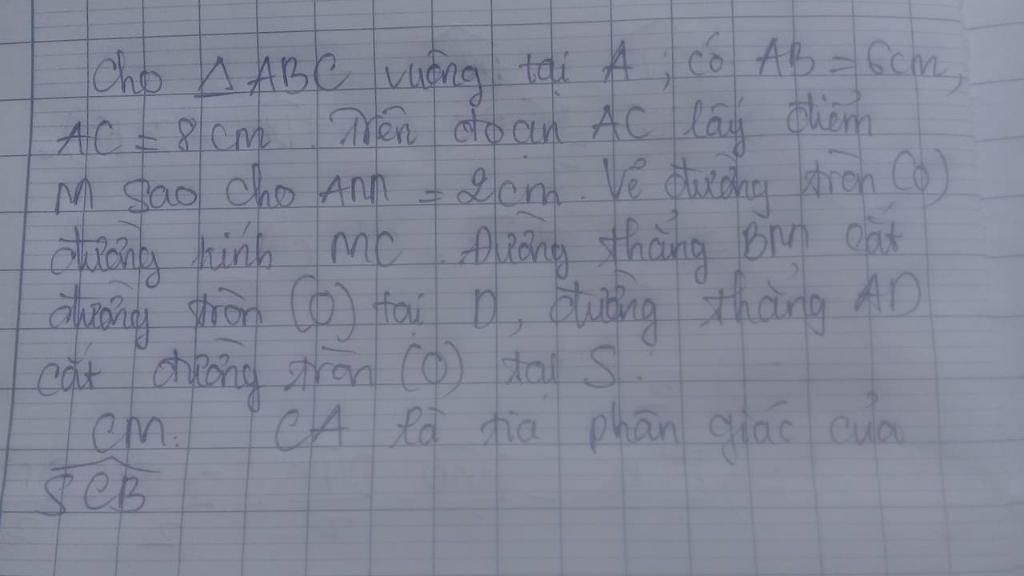 Cho △ABC vuông tại A, có AB = 6cm,
AC = 8cm. Trên đoạn AC lấy điểm
M sao cho AM = 2cm. Vẽ đường tròn (O)
đường kính MC. Đường thẳng BM cắt
đường tròn (O) tại D, đường thẳng AD
cắt đường tròn (O) tại S.
CM: CA là tia phân giác của
SCB